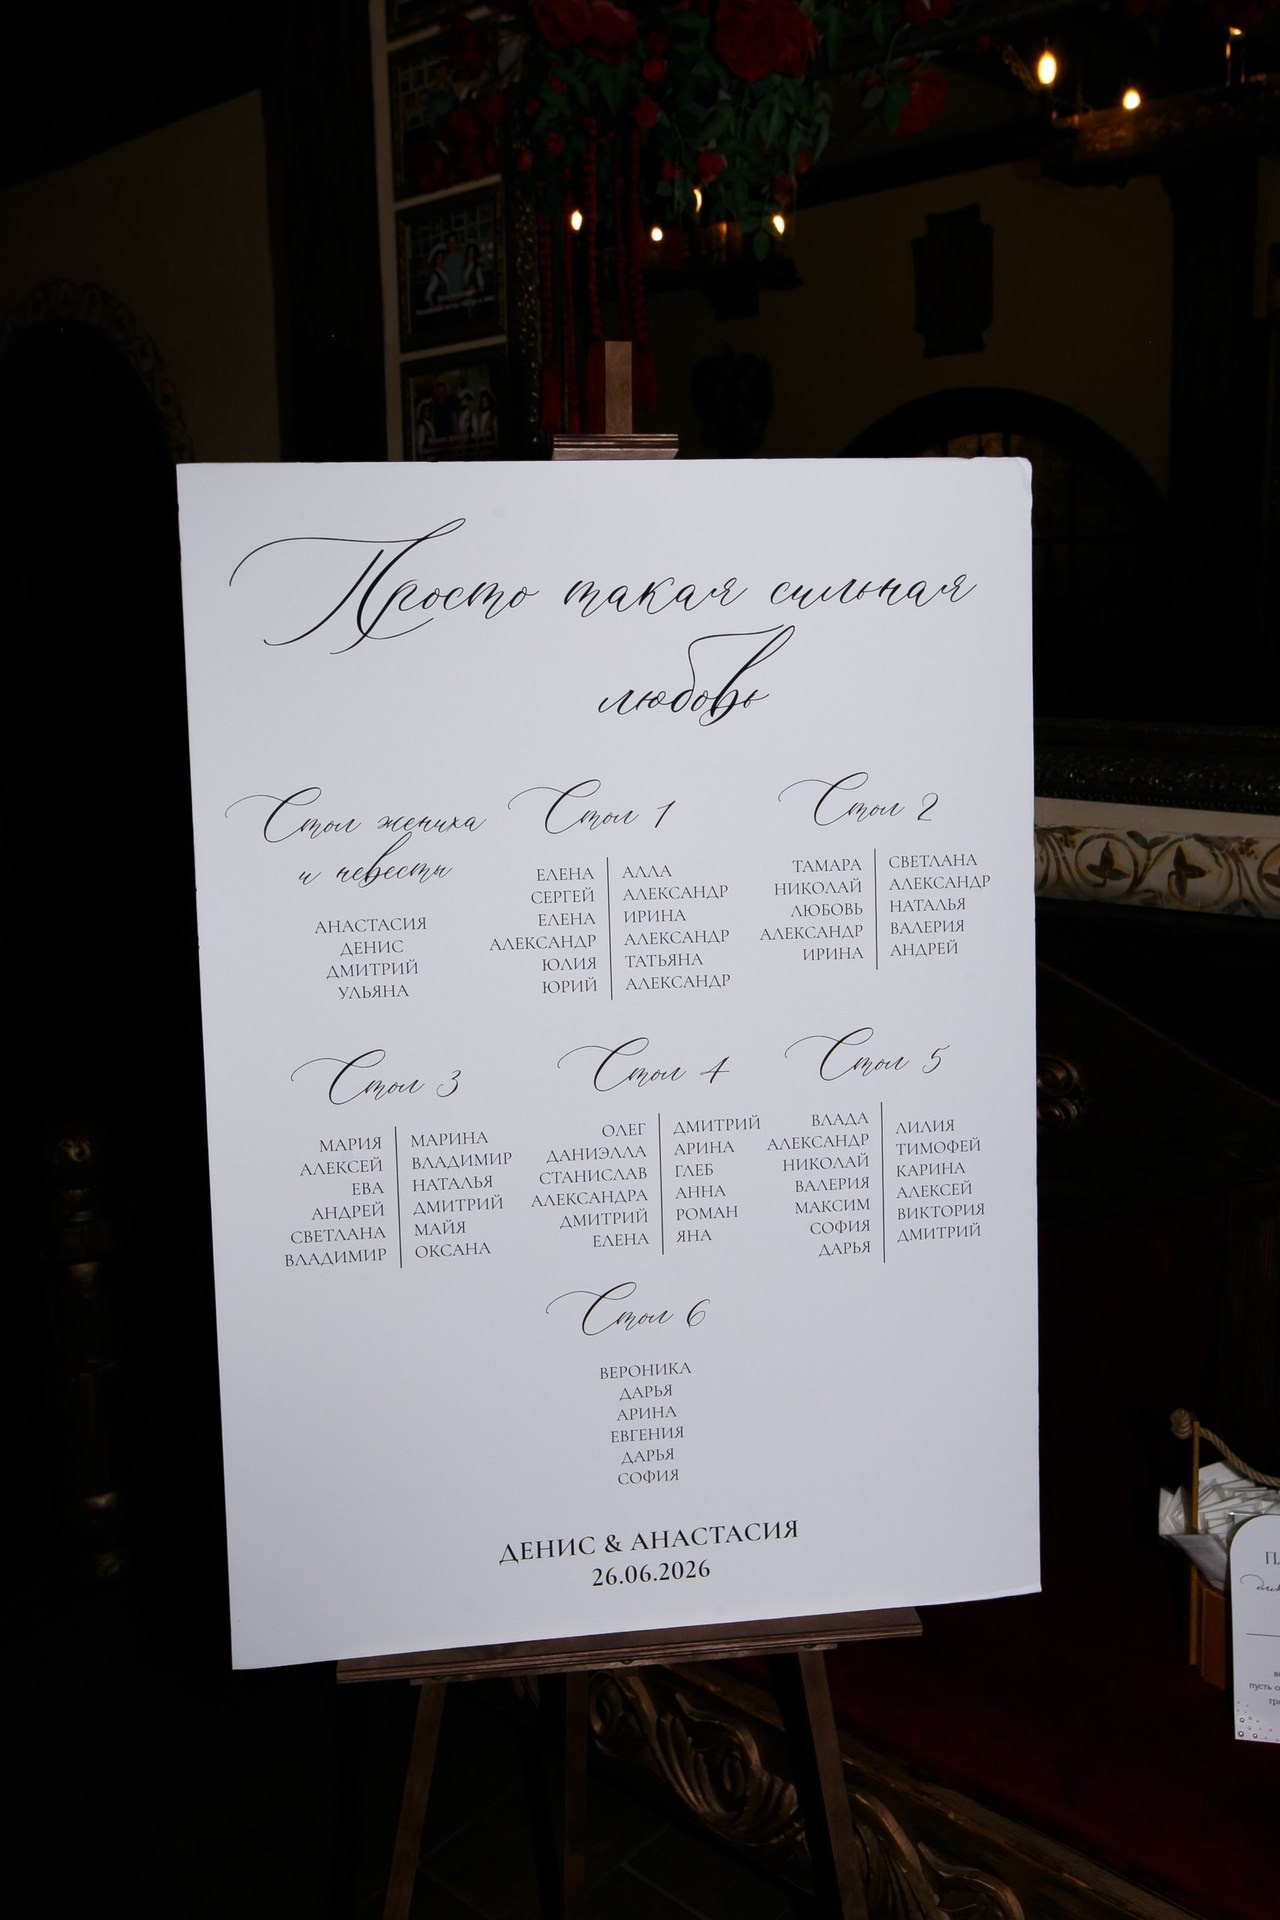 Просто такая сильная
любовь
Стол жениха
и невесты
АНАСТАСИЯ
ДЕНИС
ДМИТРИЙ
УЛЬЯНА
Стол 1
ЕЛЕНА
СЕРГЕЙ
ЕЛЕНА
АЛЕКСАНДР
ЮЛИЯ
ЮРИЙ
АЛЛА
АЛЕКСАНДР
ИРИНА
АЛЕКСАНДР
ТАТЬЯНА
АЛЕКСАНДР
Стол 2
ТАМАРА
НИКОЛАЙ
ЛЮБОВЬ
АЛЕКСАНДР
ИРИНА
СВЕТЛАНА
АЛЕКСАНДР
НАТАЛЬЯ
ВАЛЕРИЯ
АНДРЕЙ
Стол 3
МАРИЯ
АЛЕКСЕЙ
ЕВА
АНДРЕЙ
СВЕТЛАНА
ВЛАДИМИР
МАРИНА
ВЛАДИМИР
НАТАЛЬЯ
ДМИТРИЙ
МАЙЯ
ОКСАНА
Стол 4
ОЛЕГ
ДАНИЭЛЛА
СТАНИСЛАВ
АЛЕКСАНДРА
ДМИТРИЙ
ЕЛЕНА
ДМИТРИЙ
АРИНА
ГЛЕБ
АННА
РОМАН
ЯНА
Стол 5
ВЛАДА
АЛЕКСАНДР
НИКОЛАЙ
ВАЛЕРИЯ
МАКСИМ
СОФИЯ
ДАРЬЯ
ЛИЛИЯ
ТИМОФЕЙ
КАРИНА
АЛЕКСЕЙ
ВИКТОРИЯ
ДМИТРИЙ
Стол 6
ВЕРОНИКА
ДАРЬЯ
АРИНА
ЕВГЕНИЯ
ДАРЬЯ
СОФИЯ
ДЕНИС & АНАСТАСИЯ
26.06.2026
пусть